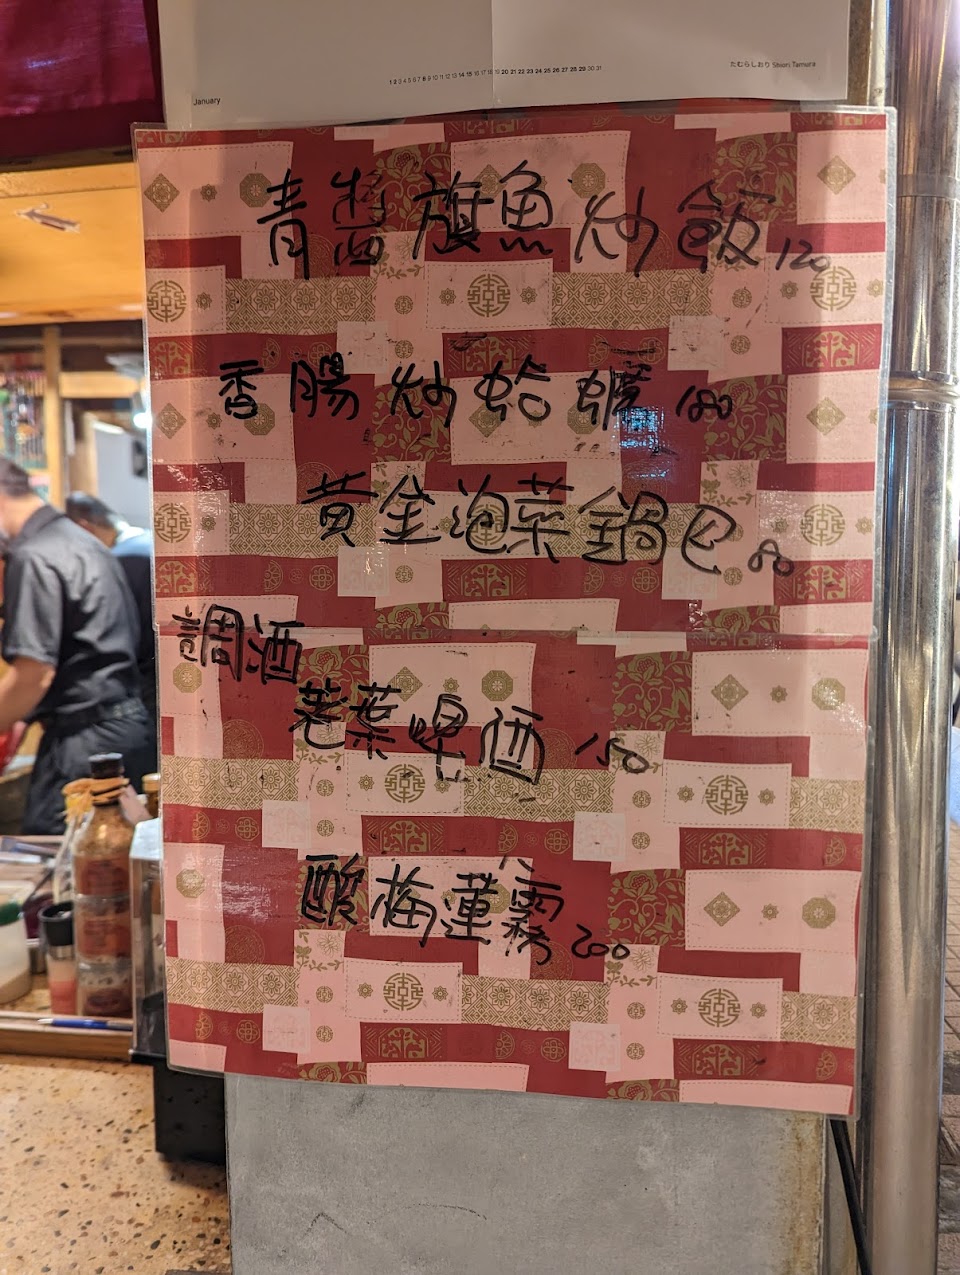 1 2 3 4 5 6 7 8 9 10 11 12 13 14 15 16 17 18 19 20 21 22 23 24 25 26 27 28 29 30 31
たむらしおり Shiori Tamura
January
青醬旗魚炒飯 120
香腸炒蛤蠣 180
黃金泡菜鍋巴 80
調酒
荖葉啤酒 150
酸梅蓮霧 200